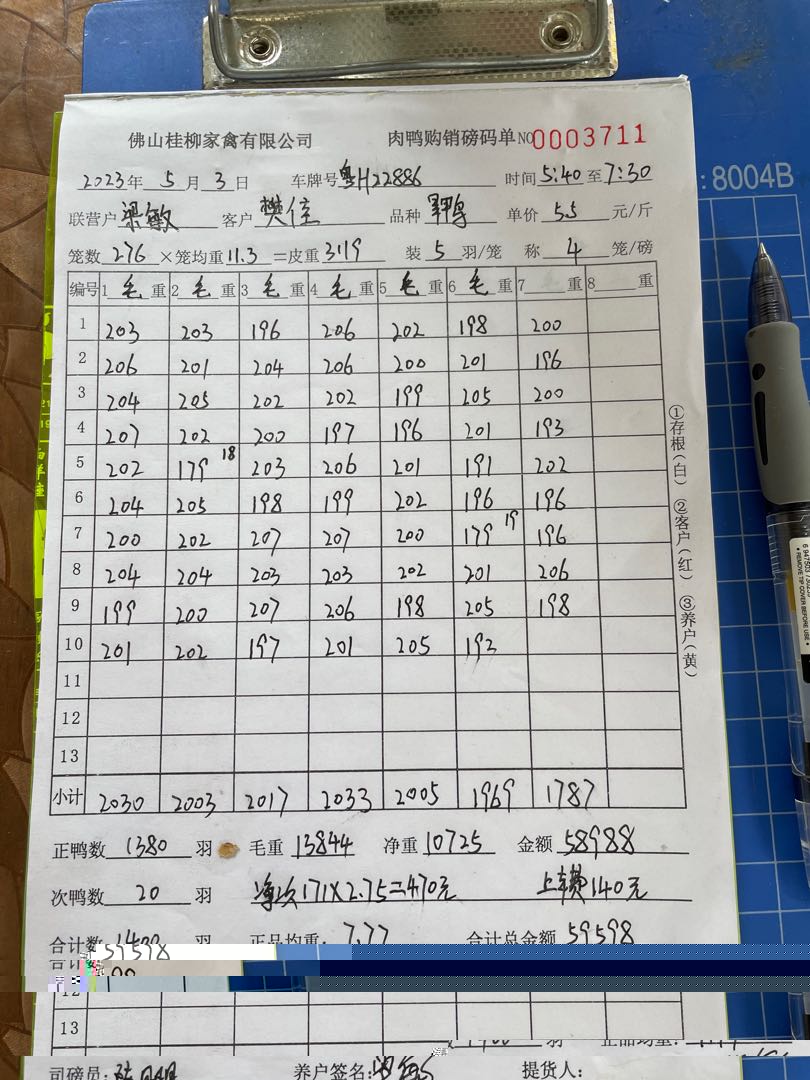 佛山桂柳家禽有限公司 肉鸭购销磅码单 NO 0003711
2023年 5 月 3 日 车牌号 粤H22886 时间 5:40 至 7:30
联营户 梁敏 客户 樊佳 品种 单价 5.5 元/斤
笼数 276 ×笼均重 11.3 =皮重 3119 装 5 羽/笼 称 4 笼/磅
编号 1 毛 重 2 毛 重 3 毛 重 4 毛 重 5 毛 重 6 毛 重 7 重 8 重
1 203 203 196 206 202 198 200
2 206 201 204 206 200 201 196
3 204 205 202 202 199 205 200
4 207 202 200 197 196 201 193
5 202 179 18 203 206 201 191 202
6 204 205 198 199 202 196 196
7 200 202 207 207 200 179 19 196
8 204 204 203 203 202 201 206
9 199 200 207 206 198 205 198
10 201 202 197 201 205 192
11
12
13
小计 2030 2003 2017 2033 2005 1969 1787
正鸭数 1380 羽 毛重 13844 净重 10725 金额 58988
次鸭数 20 羽 净次171×2.75=470元 上车费140元
合计数 1400 羽 正品均重: 7.77 合计总金额 59598
59598
13
司磅员: 养户签名: 提货人:
①存根(白) ②客户(红) ③养户(黄)
:8004B